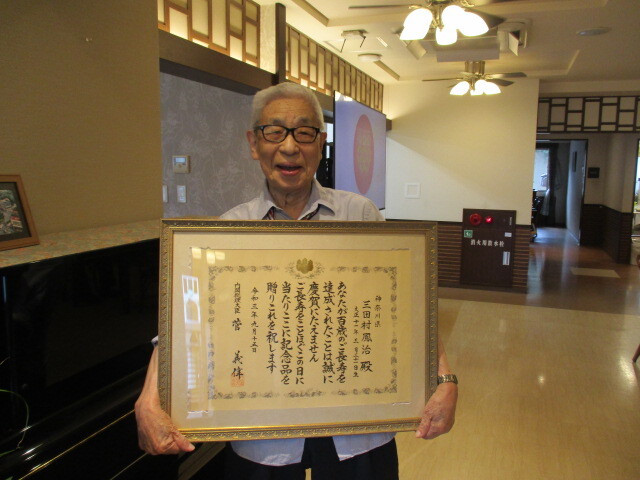 神奈川県
三田村鳳治 殿
大正十年三月
あなたが百歳のご長寿を
達成されたことは誠に
慶賀にたえません
ご長寿をことほぐこの日に
当たりここに記念品を
贈りこれを祝します
令和三年九月十五日
内閣総理大臣 菅 義偉
消火用散水栓